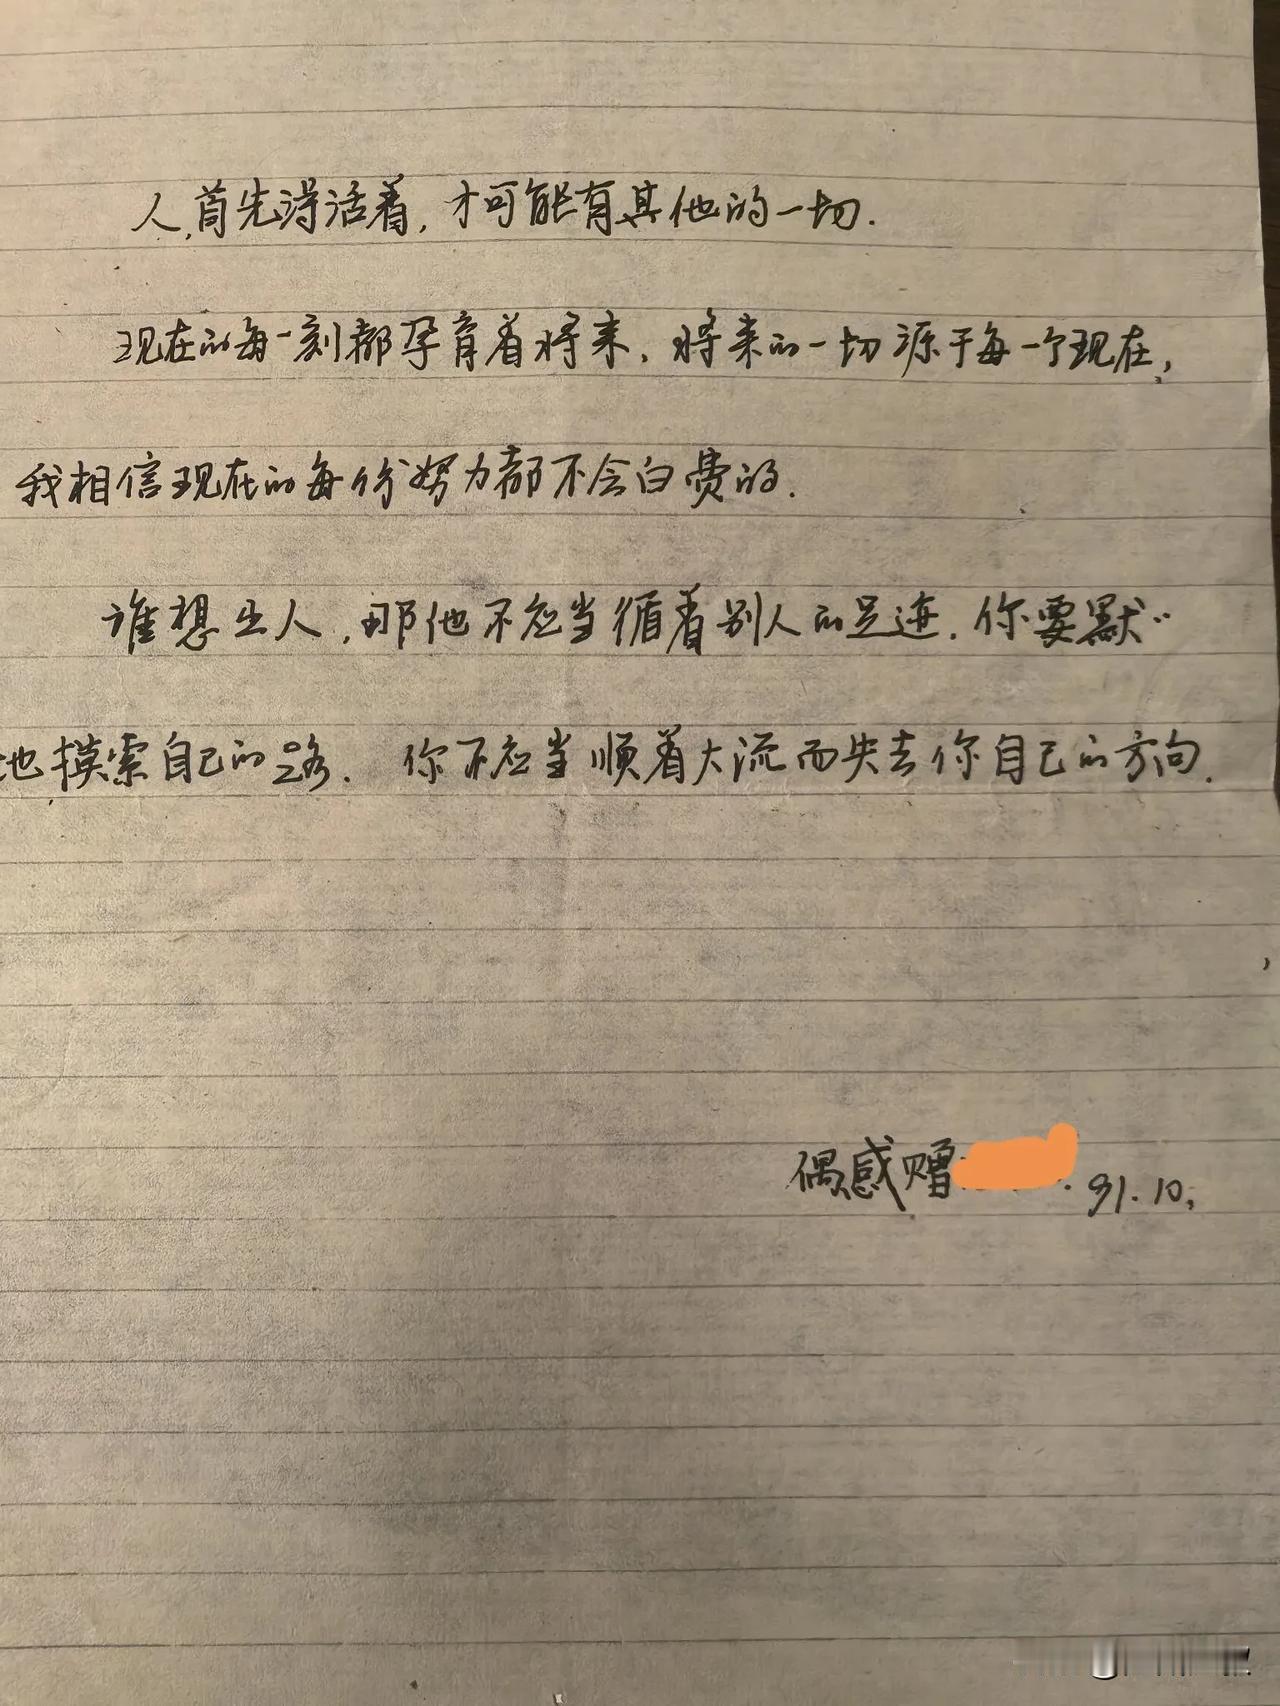 人,首先得活着,才可能有其他的一切.
现在的每一刻都孕育着将来.将来的一切源于每一个现在,
我相信现在的每份努力都不会白费的.
谁想出人,那他不应当循着别人的足迹.你要默..
地摸索自己的路.你不应当顺着大流而失去你自己的方向.
偶感赠 . 91.10,